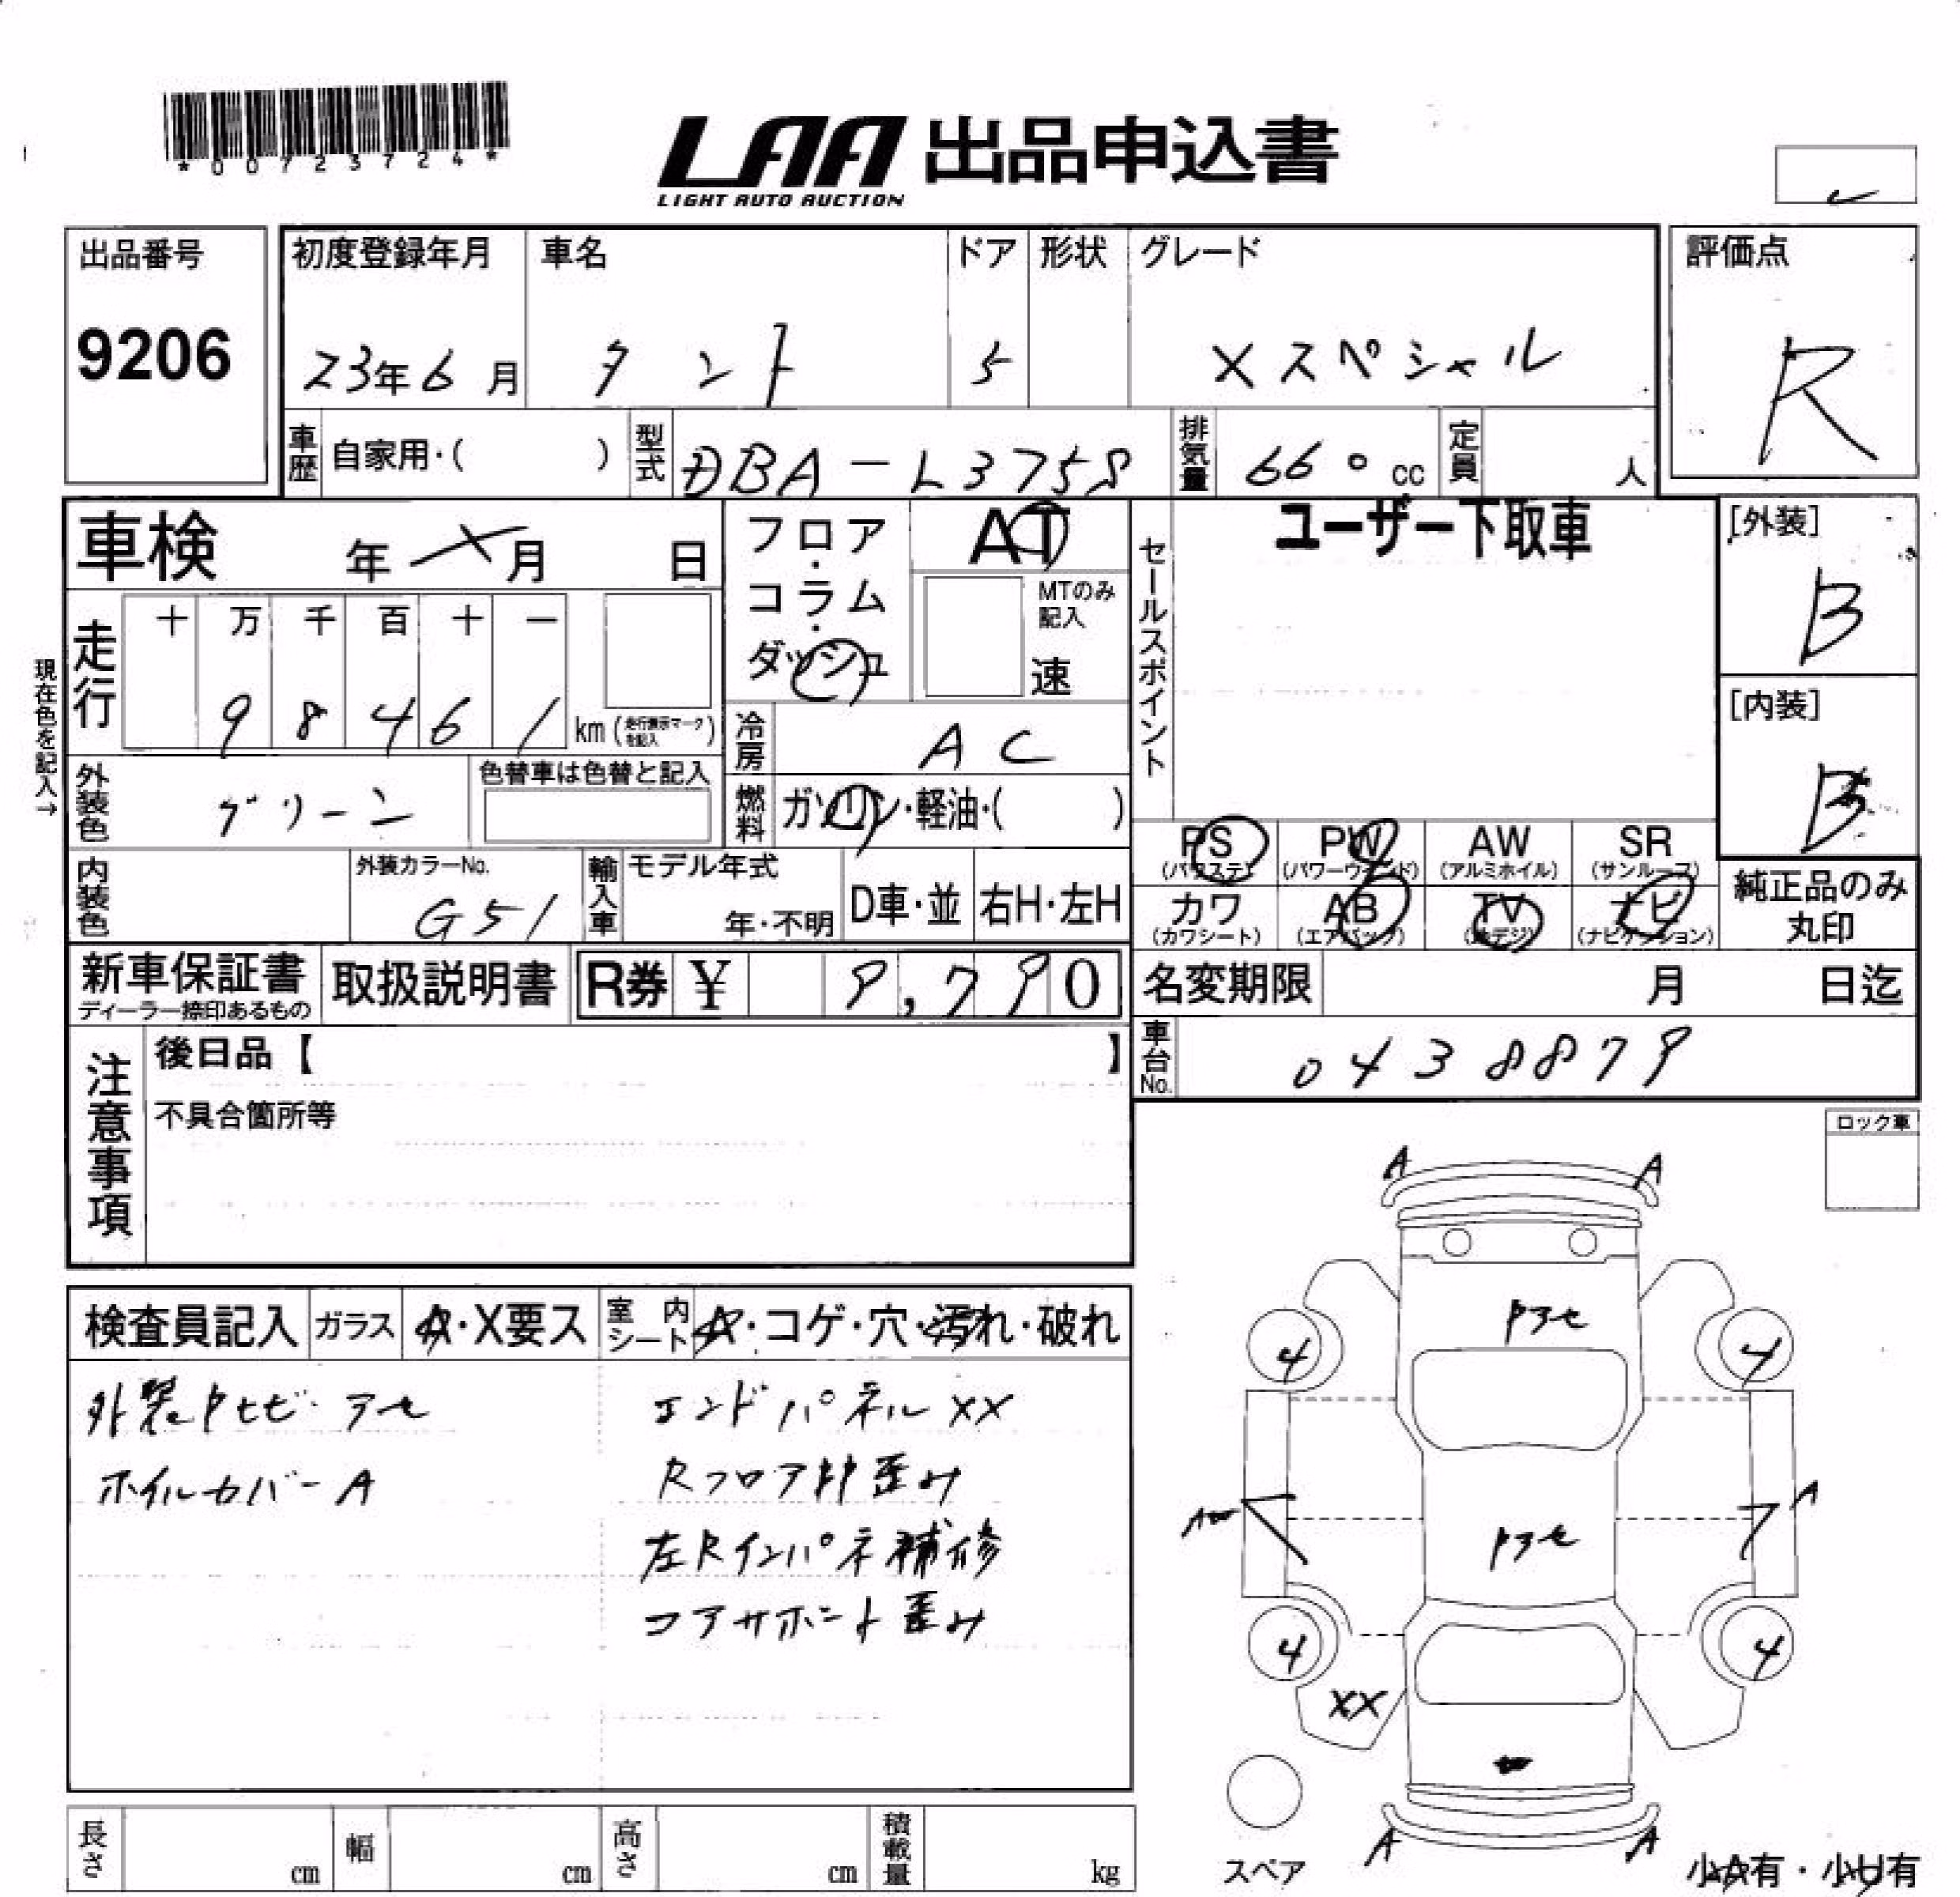 *00723724*
LAA 出品申込書
LIGHT AUTO AUCTION
出品番号 9206
初度登録年月 23年6月
車名 タント
ドア 5
形状
グレード Xスペシャル
評価点 R
車歴 自家用・( )
型式 DBA-L375S
排気量 660cc
定員 人
車検 年 月 日
フロア・コラム・ダッシュ
AT
MTのみ記入 速
セールスポイント
ユーザー下取車
[外装] B
[内装] B
現在色を記入→
走行 十 万 千 百 十 一
9 8 4 6 1 km (走行表示マークを記入)
冷房 AC
燃料 ガソリン・軽油・( )
外装色 グリーン
色替車は色替と記入
内装色
外装カラーNo. G51
輸入車 モデル年式 年・不明
D車・並 右H・左H
PS (パワステ) PW (パワーウインド) AW (アルミホイル) SR (サンルーフ)
カワ (カワシート) AB (エアバック) TV (地デジ) ナビ (ナビゲーション)
純正品のみ丸印
新車保証書 ディーラー捺印あるもの
取扱説明書
R券 ¥ 9,790
名変期限 月 日迄
車台No. 0438879
注意事項
後日品【 】
不具合箇所等
ロック車
検査員記入 ガラス A・X要ス
室内シート A・コゲ・穴・汚れ・破れ
ホイルカバーA
エンドパネルXX
Rフロア 歪み
左Rインパネ補修
コアサポート歪み
A A
4 4
A
4 4
XX
A A
スペア
小A有・小U有
長さ cm 幅 cm 高さ cm 積載量 kg